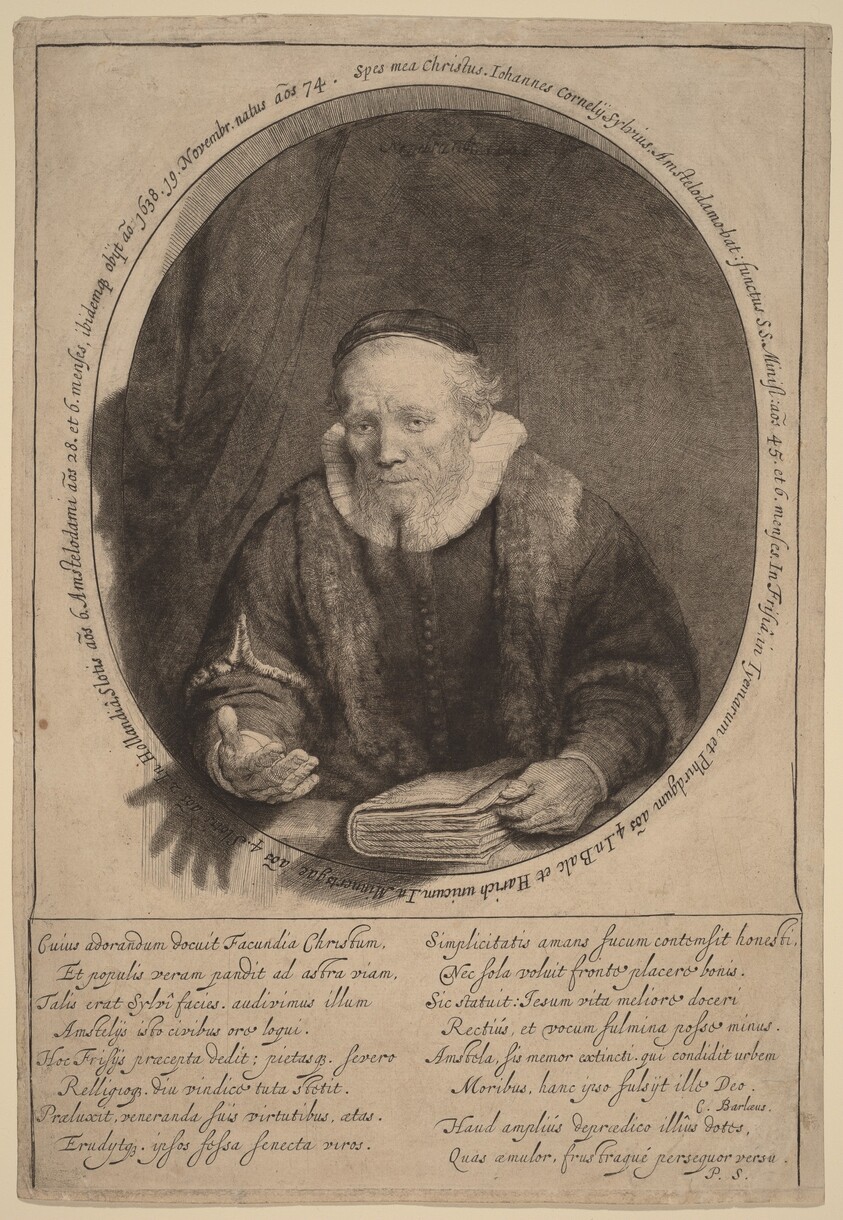 Spes mea Christus. Iohannes Cornelij Sylvius, Amstelodamobat: functus S.S. Minist: aõs 45. et 6. menses. In Frisiâ, in Tyemarum et Phirdgum aõs 4. In Balc et Harich unicum. In Minnertsgae, aõs 4. aõs 2. In Hollandiâ, Slotis aõs 6. Amstelodami aõs 28. et 6. menses, ibidemqꝫ obijt aõ. 1638. 19. Novembr. natus aõs 74.
Rembrandt
Cuius adorandum docuit Facundia Christum,
Et populis veram pandit ad astra viam,
Talis erat Sylvî facies. audivimus illum
Amstelijs isto civibus ore loqui.
Hoc Frisijs præcepta dedit; pietasqꝫ. severo
Relligioqꝫ. diu vindice tuta stetit.
Præluxit, veneranda suis virtutibus, ætas.
Erudytqꝫ. ipsos fessa senecta viros.
Simplicitatis amans fucum contemsit honesti,
Nec sola voluit fronte placere bonis.
Sic statuit: Jesum vita meliore doceri
Rectiús, et vocum fulmina posse minus.
Amstela, sis memor extincti. qui condidit urbem
Moribus, hanc ipso fulsijt ille Deo.
C. Barlæus.
Haud ampliús deprædico illius dotes,
Quas æmulor, frustraqué persequor versu.
P. S.